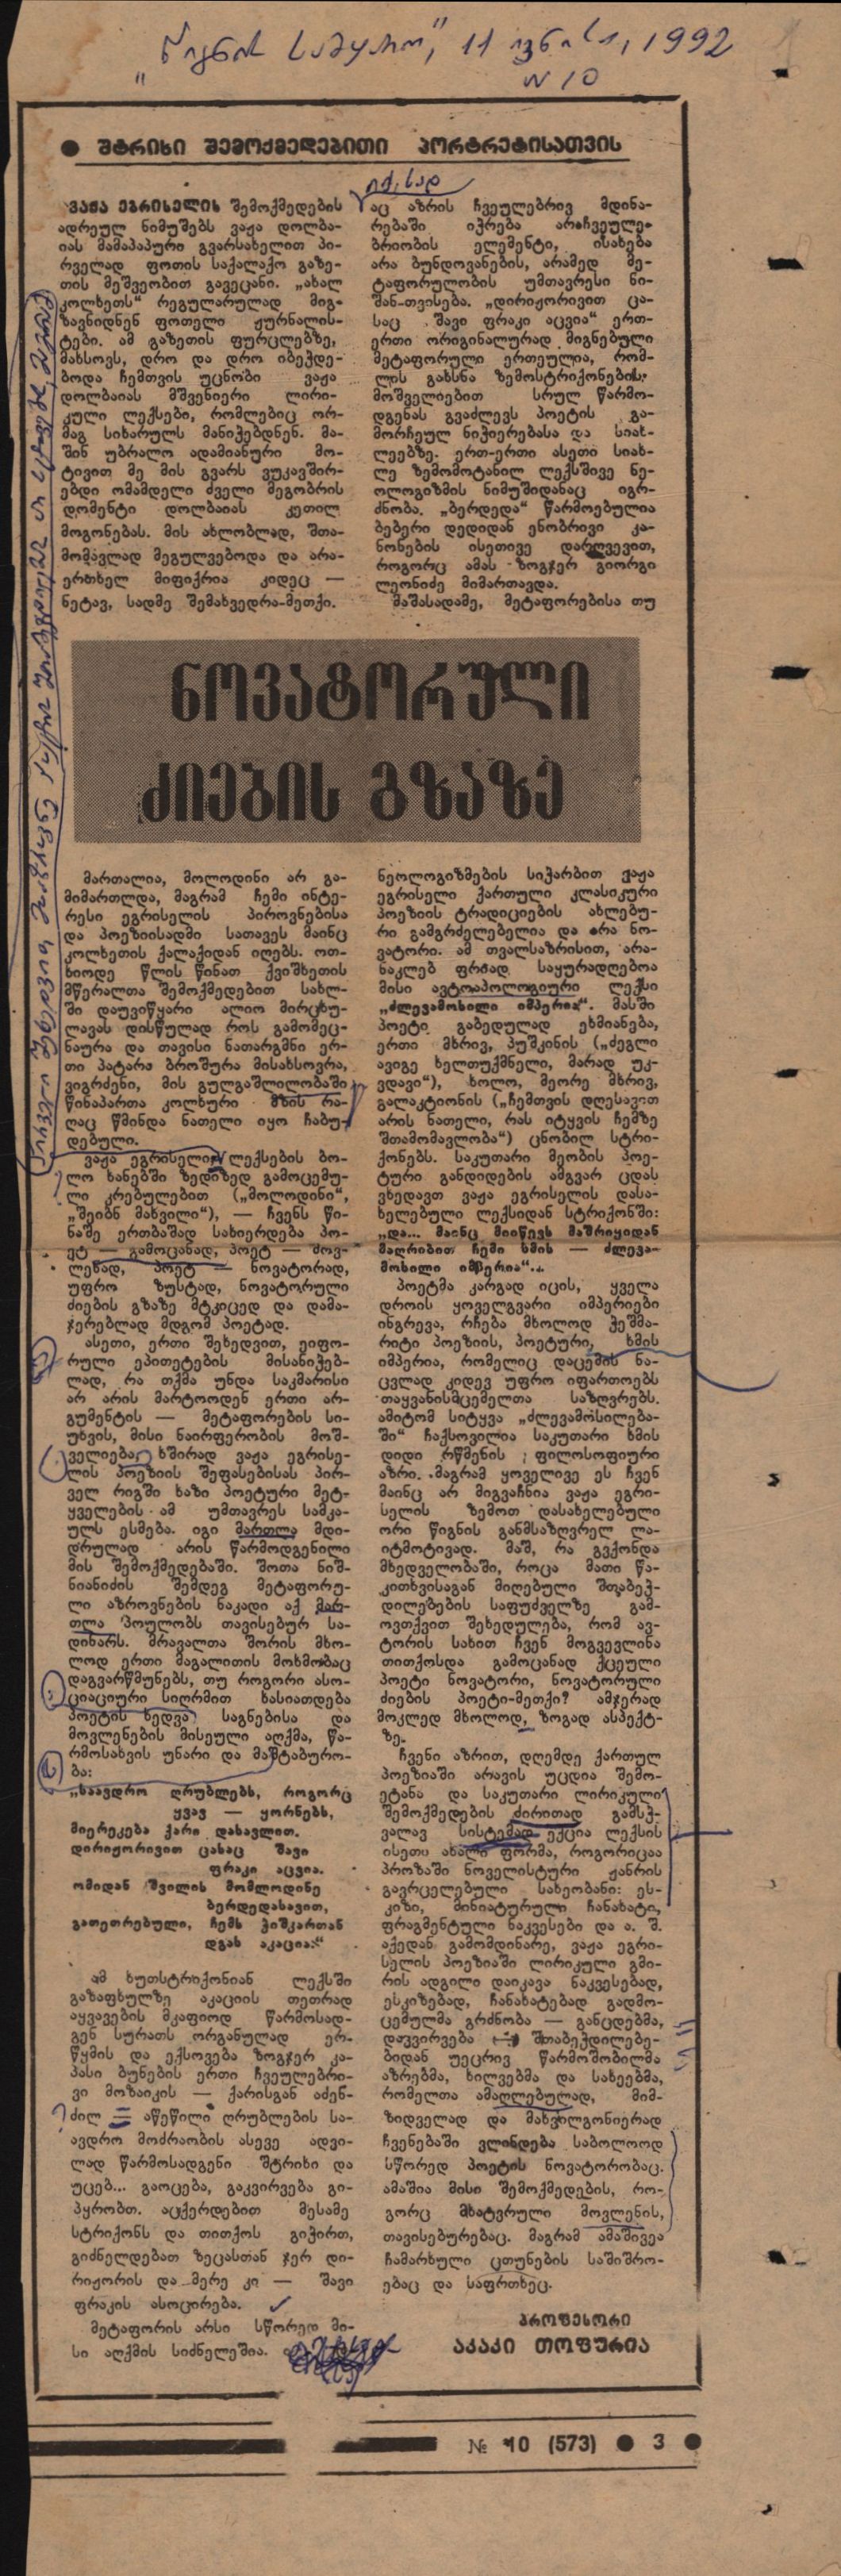 „წიგნის სამყარო", 11 ივნისი, 1992
N 10
● შტრიხი შემოქმედებითი პორტრეტისათვის
ვაჟა ეგრისელის შემოქმედების
ადრეულ ნიმუშებს ვაჟა დოლბა-
იას მამაპაპური გვარსახელით პი-
რველად ფოთის საქალაქო გაზე-
თის მეშვეობით გავეცანი. „ახალ
კოლხეთს“ რეგულარულად მიგ-
ზავნიდნენ ფოთელი ჟურნალის-
ტები. ამ გაზეთის ფურცლებზე,
მახსოვს, დრო და დრო იბეჭდე-
ბოდა ჩემთვის უცნობი ვაჟა
დოლბაიას მშვენიერი ლირი-
კული ლექსები, რომლებიც ორ-
მაგ სიხარულს მანიჭებდნენ. მა-
შინ უბრალო ადამიანური მო-
ტივით მე მის გვარს ვუკავშირ-
ებდი ომამდელი ძველი მეგობრის
დომენტი დოლბაიას კეთილ
მოგონებას. მის ახლობლად, შთა-
მომავლად მეგულვებოდა და არა-
ერთხელ მიფიქრია კიდეც —
ნეტავ, სადმე შემახვედრა-მეთქი.
იქ, სად
აც აზრის ჩვეულებრივ მდინა-
რებაში იჭრება არაჩვეულე-
ბრიობის ელემენტი, ისახება
არა ბუნდოვანების, არამედ მე-
ტაფორულობის უმთავრესი ნი-
შან-თვისება. „დირიჟორივით ცა-
საც შავი ფრაკი აცვია“ ერთ-
ერთი ორიგინალურად მიგნებული
მეტაფორული ერთეულია, რომ-
ლის გახსნა ზემოსტრიქონების
მოშველიებით სრულ წარმო-
დგენას გვაძლევს პოეტის გა-
მორჩეულ ნიჭიერებასა და სიახ-
ლეებზე. ერთ-ერთი ასეთი სიახ-
ლე ზემომოტანილ ლექსშივე ნე-
ოლოგიზმის ნიმუშიდანაც იგრ-
ძნობა. „ბერდედა“ წარმოებულია
ბებერი დედიდან ენობრივი კა-
ნონების ისეთივე დარღვევით,
როგორც ამას ზოგჯერ გიორგი
ლეონიძე მიმართავდა.
მაშასადამე, მეტაფორებისა თუ
ნოვატორული
ძიების გზაზე
მართალია, მოლოდინი არ გა-
მიმართლდა, მაგრამ ჩემი ინტე-
რესი ეგრისელის პიროვნებისა
და პოეზიისადმი სათავეს მაინც
კოლხეთის ქალაქიდან იღებს. ოთ-
ხიოდე წლის წინათ ქვიშხეთის
მწერალთა შემოქმედებით სახლ-
ში დაუვიწყარი ალიო მირცხუ-
ლავას დისწულად როს გამომეც-
ნაურა და თავისი ნათარგმნი ერ-
თი პატარა ბროშურა მისახსოვრა,
ვიგრძენი, მის გულგაშლილობაში
წინაპართა კოლხური მზის რა-
ღაც წმინდა ნათელი იყო ჩაბუ-
დებული.
ვაჟა ეგრისელი ლექსების ბო-
ლო ხანებში ზედიზედ გამოცემუ-
ლი კრებულებით („მოლოდინი“,
„შეიბნ მახვილი“), — ჩვენს წი-
ნაშე ერთბაშად სახიერდება პო-
ეტ — გამოცანად, პოეტ — მოვ-
ლენად, პოეტ — ნოვატორად,
უფრო ზუსტად, ნოვატორული
ძიების გზაზე მტკიცედ და დამა-
ჯერებლად მდგომ პოეტად.
ასეთი, ერთი შეხედვით, ეიფო-
რული ეპითეტების მისანიჭებ-
ლად, რა თქმა უნდა საკმარისი
არ არის მარტოოდენ ერთი არ-
გუმენტის — მეტაფორების სი-
უხვის, მისი ნაირფერობის მოშ-
ველიება ხშირად ვაჟა ეგრისე-
ლის პოეზიის შეფასებისას პირ-
ველ რიგში ხაზი პოეტური მეტ-
ყველების ამ უმთავრეს სამკა-
ულს ესმება. იგი მართლა მდი-
დრულად არის წარმოდგენილი
მის შემოქმედებაში. შოთა ნიშ-
ნიანიძის შემდეგ მეტაფორუ-
ლი აზროვნების ნაკადი აქ მარ-
თლა პოულობს თავისებურ სა-
დინარს. მრავალთა შორის მხო-
ლოდ ერთი მაგალითის მოხმობაც
დაგვარწმუნებს, თუ როგორი ასო-
ციაციური სიღრმით ხასიათდება
პოეტის ხედვა საგნებისა და
მოვლენების მისეული აღქმა, წა-
რმოსახვის უნარი და მაშტაბურო-
ბა:
„საავდრო ღრუბლებს, როგორც
ყვავ — ყორნებს,
მიერეკება ქარი დასავლით.
დირიჟორივით ცასაც შავი
ფრაკი აცვია.
ომიდან შვილის მომლოდინე
ბერდედასავით,
გათეთრებული, ჩემს ჭიშკართან
დგას აკაცია:“
ამ ხუთსტრიქონიან ლექსში
გაზაფხულზე აკაციის თეთრად
აყვავების მკაფიოდ წარმოსად-
გენ სურათს ორგანულად ერ-
წყმის და ექსოვება ზოგჯერ კა-
პასი ბუნების ერთი ჩვეულებრი-
ვი მოზაიკის — ქარისგან აძენ-
ძილ — აწეწილი ღრუბლების სა-
ავდრო მოძრაობის ასევე ადვი-
ლად წარმოსადგენი შტრიხი და
უცებ... გაოცება, გაკვირვება გი-
პყრობთ. აცქერდებით მესამე
სტრიქონს და თითქოს გიჭირთ,
გიძნელდებათ ზეცასთან ჯერ დი-
რიჟორის და მერე კი — შავი
ფრაკის ასოცირება.
მეტაფორის არსი სწორედ მი-
სი აღქმის სიძნელეშია.
ნეოლოგიზმების სიჭარბით ვაჟა
ეგრისელი ქართული კლასიკური
პოეზიის ტრადიციების ახლებუ-
რი გამგრძელებელია და არა ნო-
ვატორი. ამ თვალსაზრისით, არა-
ნაკლებ ფრიად საყურადღებოა
მისი ავტოაპოლოგიური ლექსი
„ძლევამოსილი იმპერია“. მასში
პოეტი გაბედულად ეხმიანება,
ერთი მხრივ, პუშკინის („ძეგლი
ავიგე ხელთუქმნელი, მარად უკ-
ვდავი“), ხოლო, მეორე მხრივ,
გალაკტიონის („ჩემთვის დღესავით
არის ნათელი, რას იტყვის ჩემზე
შთამომავლობა“) ცნობილ სტრი-
ქონებს. საკუთარი მეობის პოე-
ტური განდიდების ამგვარ ცდას
ვხედავთ ვაჟა ეგრისელის დასა-
ხელებული ლექსიდან სტრიქონში:
„და... მაინც მიიწევს მაშრიყიდან
მაღრიბით ჩემი ხმის — ძლევა-
მოსილი იმპერია“...
პოეტმა კარგად იცის, ყველა
დროის ყოველგვარი იმპერიები
ინგრევა, რჩება მხოლოდ ჭეშმა-
რიტი პოეზიის, პოეტური, ხმის
იმპერია, რომელიც დაცემის ნა-
ცვლად კიდევ უფრო იფართოებს
თაყვანისმცემელთა საზღვრებს.
ამიტომ სიტყვა „ძლევამოსილება-
ში“ ჩაქსოვილია საკუთარი ხმის
დიდი რწმენის ფილოსოფიური
აზრი. მაგრამ ყოველივე ეს ჩვენ
მაინც არ მიგვაჩნია ვაჟა ეგრი-
სელის ზემოთ დასახელებული
ორი წიგნის განმსაზღვრელ ლა-
იტმოტივად. მაშ, რა გვქონდა
მხედველობაში, როცა მათი წა-
კითხვისაგან მიღებული შთაბეჭ-
დილებების საფუძველზე გამ-
ოვთქვით შეხედულება, რომ ავ-
ტორის სახით ჩვენ მოგვევლინა
თითქოსდა გამოცანად ქცეული
პოეტი ნოვატორი, ნოვატორული
ძიების პოეტი-მეთქი? ამჯერად
მოკლედ მხოლოდ, ზოგად ასპექტ-
ზე.
ჩვენი აზრით, დღემდე ქართულ
პოეზიაში არავის უცდია შემო-
ეტანა და საკუთარი ლირიკული
შემოქმედების ძირითად გამსჭ-
ვალავ სისტემად ექცია ლექსის
ისეთი ახალი ფორმა, როგორიცაა
პროზაში ნოველისტური ჟანრის
გავრცელებული სახეობანი: ეს-
კიზი, მინიატურული ჩანახატი,
ფრაგმენტული ნაკვესები და ა. შ.
აქედან გამომდინარე, ვაჟა ეგრი-
სელის პოეზიაში ლირიკული გმი-
რის ადგილი დაიკავა ნაკვესებად,
ესკიზებად, ჩანახატებად გადმო-
ცემულმა გრძნობა — განცდებმა,
დაკვირვება შთაბეჭდილებე-
ბიდან უეცრივ წარმოშობილმა
აზრებმა, ხილვებმა და სახეებმა,
რომელთა ამაღლებულად, მიმ-
ზიდველად და მახვილგონიერად
ჩვენებაში ვლინდება საბოლოოდ
სწორედ პოეტის ნოვატორობაც.
ამაშია მისი შემოქმედების, რო-
გორც მხატვრული მოვლენის,
თავისებურებაც. მაგრამ ამაშივეა
ჩამარხული ცთუნების საშიშრო-
ებაც და საფრთხეც.
პროფესორი
აკაკი თოფურია
№ 10 (573) ● 3 ●